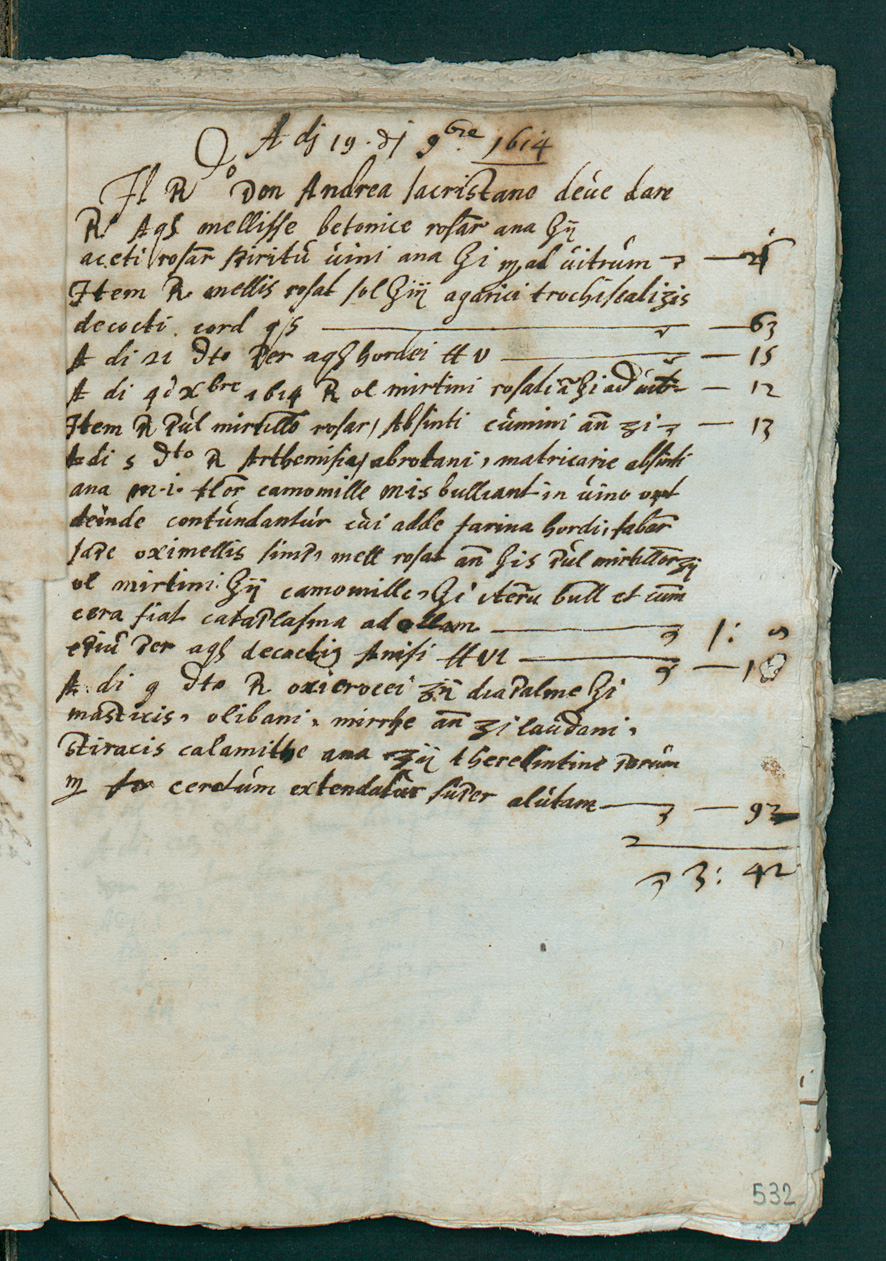 A dj 19. dj 9bre 1614
Il Rdo Don Andrea sacristano deve dare
R Aqȩ mellisse betonice rosar ana ℥ij
aceti rosar spiritu vini ana ℥i m ad vitrum —
Item R mellis rosat sol ℥iij agarici trochiscati ʒis
decocti cord q/s — 63
A di 21 dto per aqȩ hordei ℔ v — 15
A di 4 d xbre 1614 R ol mirtini rosati ā ℥i ad vit — 12
Item R pul mirtillo rosar, Absinti cumini an ʒi — 13
A di 5 dto R Arthemisia, abrotani, matricarie absinti
ana m. i. flor camomille mis bulliant in vino
deinde contundantur cui adde farina hordi, fabar
sape oximellis simp, mell rosar an ℥is pul mirtillor ʒij
ol mirtini ℥ij camomille, ℥i iteru bull et cum
cera fiat cataplasma ad ollam — 1:
e piu per aqȩ decoctio Anisi ℔ vi — 10
A. di 9 dto R oxicrocei diapalme ℥i
masticis, olibani, mirrhe an ʒi laudani,
stiracis calamithe ana ʒij therebintine parum
m ceretum extendatur super alutam — 92
3: 42
532